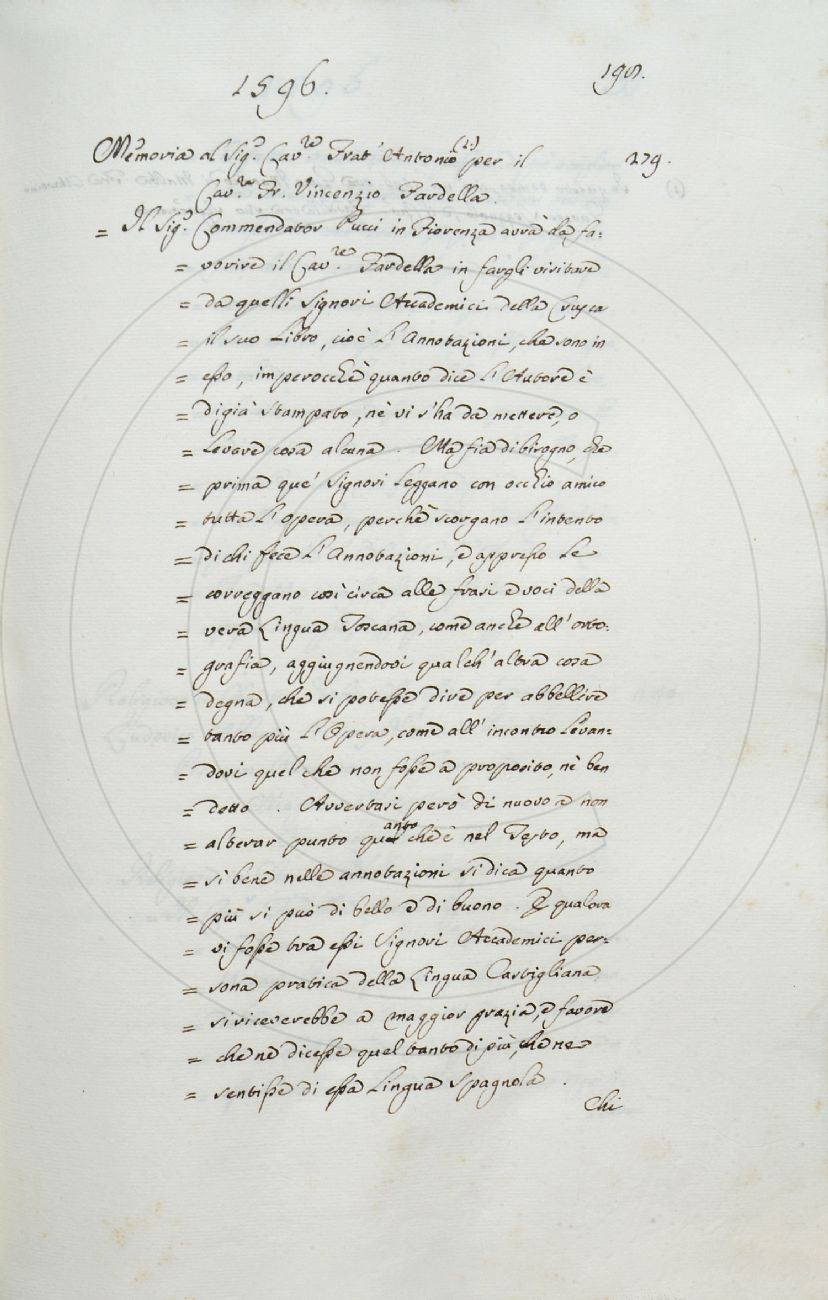 1596.
198.
Memoria al Sig.r Cav.re Frat' Antonio (1) per il
279.
Cav.re Fr. Vincenzio Fardella.
= Il Sig.r Commendator Pucci in Fiorenza avrà da fa=
= vorire il Cav.re Fardella in fargli visitare
= da quelli Signori Accademici della Crusca
= il suo Libro, cioè l'Annotazioni, che sono in
= esso, imperocchè quanto dice l'Autore è
= digià stampato, nè vi s'ha da mettere, o
= levare cosa alcuna. Ma fia di bisogno, che
= prima que' Signori leggano con occhio amico
= tutta l'opera, perchè scorgano l'intento
= di chi fece l'Annotazioni, e appresso le
= correggano così circa alle frasi e voci della
= vera Lingua Toscana, come anche all'orto=
= grafia, aggiugnendovi qualch'altra cosa
= degna, che si potesse dire per abbellire
= tanto più l'Opera, come all'incontro levan=
= dovi quel che non fosse a proposito, nè ben
= detto. Avvertasi però di nuovo a non
= alterar punto quanto ch'è nel Testo, ma
= sì bene nelle annotazioni si dica quanto
= più si può di bello e di buono. E qualora
= vi fosse tra essi Signori Accademici per=
= sona pratica della Lingua Castigliana
= si riceverebbe a maggior grazia, e favore
= che ne dicesse quel tanto di più, che ne
= sentisse di essa Lingua Spagnola.
Chi